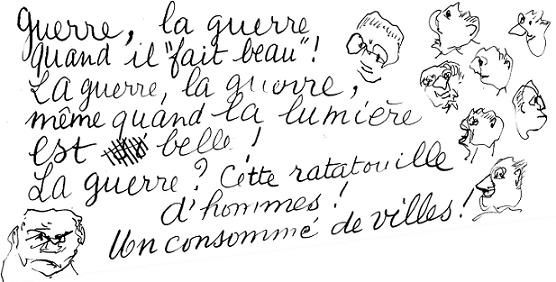 Guerre, la guerre
quand il "fait beau"!
La guerre, la guerre,
même quand la lumière
est belle!
La guerre? Cette ratatouille
d'hommes!
Un consommé de villes!